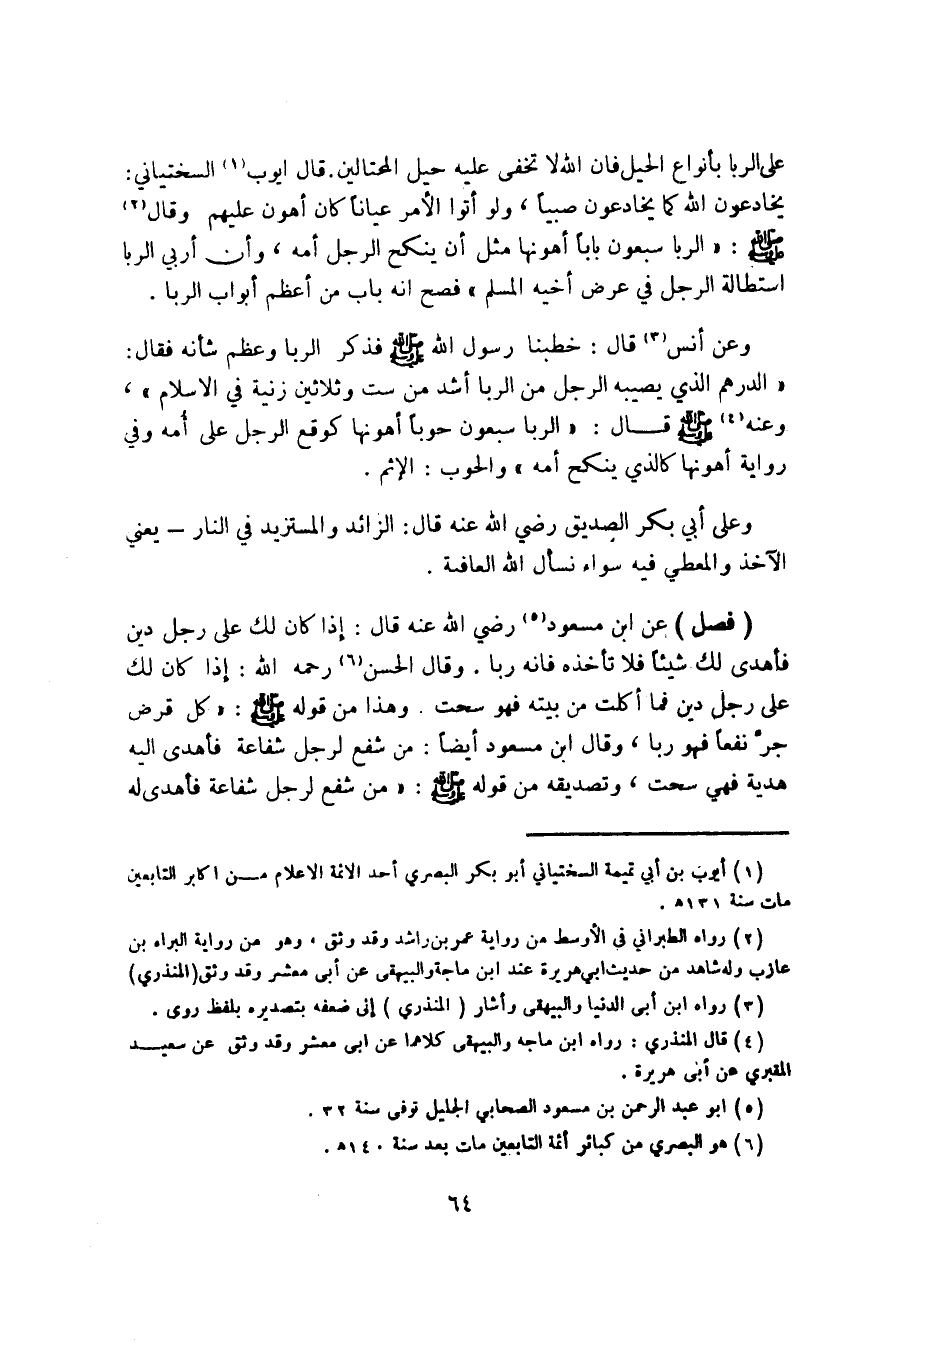 على الربا بأنواع الحيل فان الله لا تخفى عليه حيل المحتالين. قال ايوب (١) السختياني :
يخادعون الله كما يخادعون صبياً ، ولو أتوا الأمر عياناً كان أهون عليهم وقال (٢)
ﷺ : « الربا سبعون باباً أهونها مثل أن ينكح الرجل أمه ، وأن أربي الربا
استطالة الرجل في عرض أخيه المسلم » فصح انه باب من أعظم أبواب الربا .
وعن أنس (٣) قال : خطبنا رسول الله ﷺ فذكر الربا وعظم شأنه فقال :
« الدرهم الذي يصيبه الرجل من الربا أشد من ست وثلاثين زنية في الاسلام » ،
وعنه (٤) ﷺ قـــال : « الربا سبعون حوباً أهونها كوقع الرجل على أمه وفي
رواية أهونها كالذي ينكح أمه » والحوب : الإثم .
وعلى أبي بكر الصديق رضي الله عنه قال : الزائد والمستزيد في النار – يعني
الآخذ والمعطي فيه سواء نسأل الله العافية .
( فصل ) عن ابن مسعود (٥) رضي الله عنه قال : إذا كان لك على رجل دين
فأهدى لك شيئاً فلا تأخذه فانه ربا . وقال الحسن (٦) رحمه الله : إذا كان لك
على رجل دين فما أكلت من بيته فهو سحت . وهذا من قوله ﷺ : « كل قرض
جرّ نفعاً فهو ربا ، وقال ابن مسعود أيضاً : من شفع لرجل شفاعة فأهدى اليه
هدية فهي سحت ، وتصديقه من قوله ﷺ : « من شفع لرجل شفاعة فأهدى له
(١) أيوب بن أبي تميمة السختياني أبو بكر البصري أحد الائمة الاعلام مـــن اكابر التابعين
مات سنة ١٣١ه .
(٢) رواه الطبراني في الأوسط من رواية عمر بن راشد وقد وثق ، وهو من رواية البراء بن
عازب وله شاهد من حديث ابي هريرة عند ابن ماجة والبيهقى عن أبى معشر وقد وثق (المنذري)
(٣) رواه ابن أبى الدنيا والبيهقى وأشار ( المنذري ) إلى ضعفه بتصديره بلفظ روى .
(٤) قال المنذري : رواه ابن ماجه والبيهقى كلاهما عن ابى معشر وقد وثق عن سعيـــد
المقبري عن أبى هريرة .
(٥) ابو عبد الرحمن بن مسعود الصحابي الجليل توفى سنة ٣٢ .
(٦) هو البصري من كبائر أئمة التابعين مات بعد سنة ١٤٠ه .
٦٤